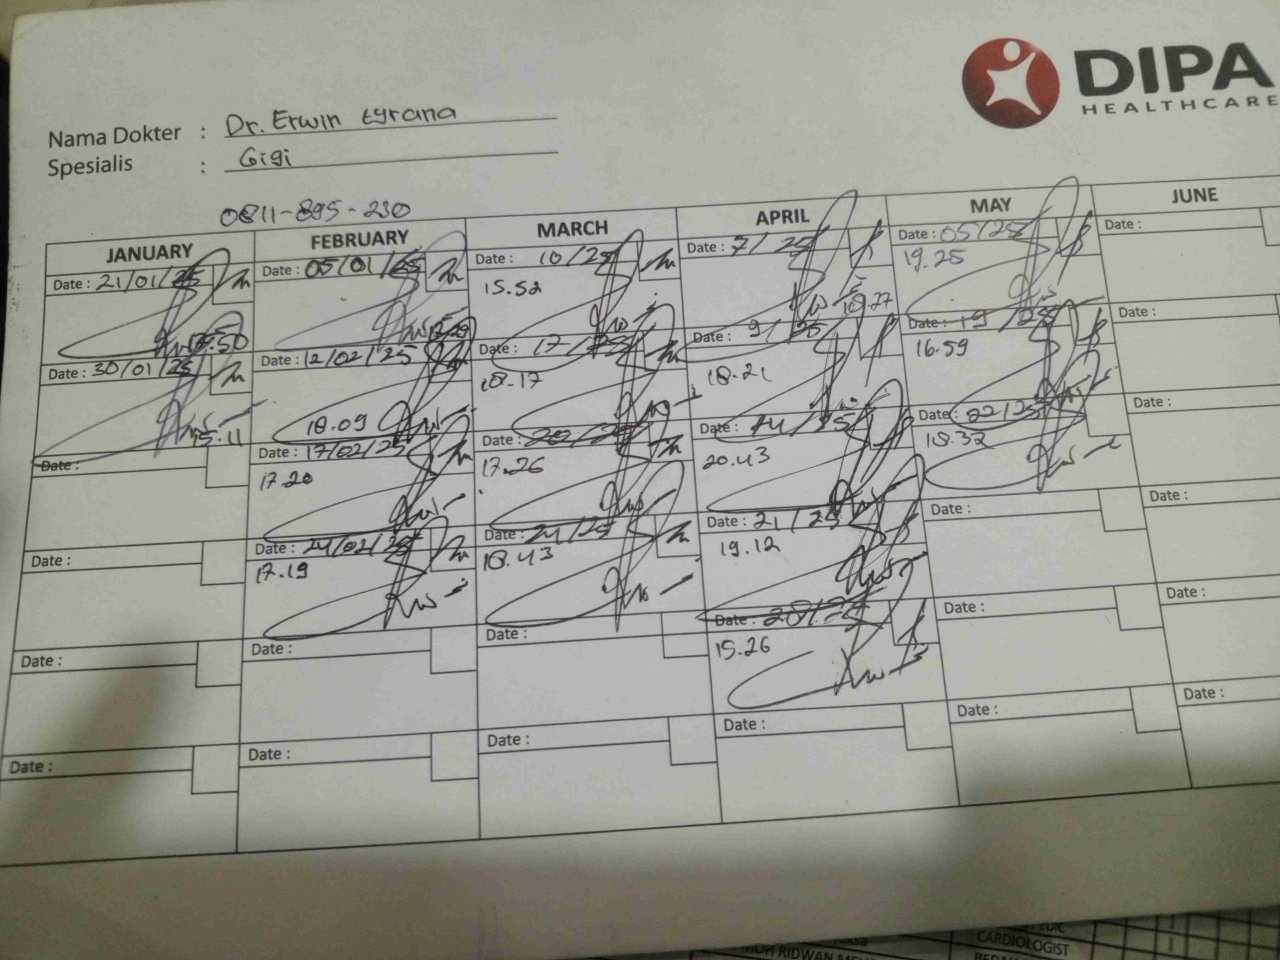 DIPA
HEALTHCARE
Nama Dokter : Dr. Erwin tyrana
Spesialis : Gigi
0811-895-230
JANUARY FEBRUARY MARCH APRIL MAY JUNE
Date : 21/01/25 Date : 05/01/25 Date : 10/25 Date : 7/25 Date : 05/25 Date :
15.52 19.25
Date : 30/01/25 Date : 12/02/25 Date : 17/25 Date : 9/25 Date : 19/25 Date :
15.11 18.09 18.17 18.21 16.59
Date : Date : 17/02/25 Date : 20/25 Date : 14/25 Date : 22/25 Date :
17.20 17.26 20.43 18.32
Date : Date : 24/02/25 Date : 24/25 Date : 21/25 Date : Date :
17.19 18.43 19.12
Date : Date : Date : Date : 28/25 Date : Date :
15.26
Date : Date : Date : Date : Date : Date :
CARDIOLOGIST